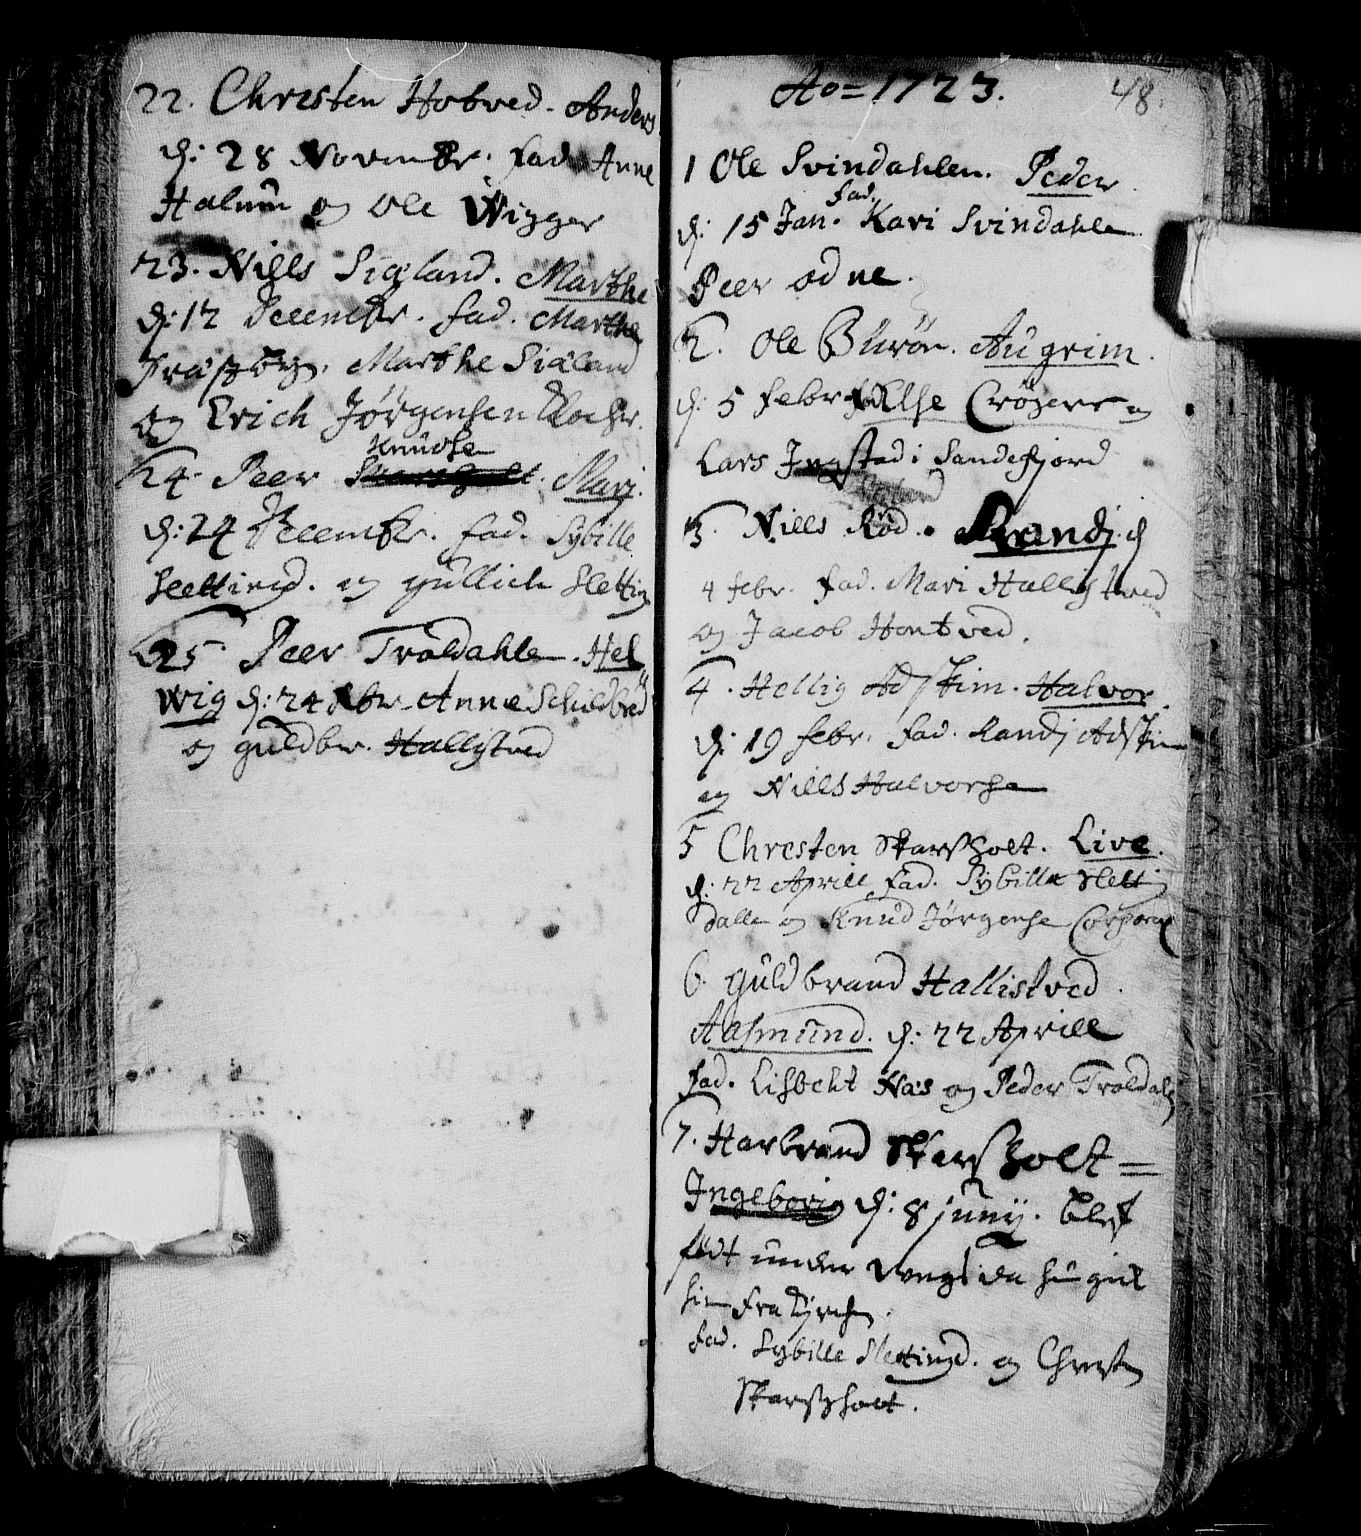 22. Christen Hobved. Anders
d: 28 Novembr. fad. Anne
Halum og Ole Wigger
23. Niels Sigland. Marthe
d: 12 Decembr. fad. Marthe
Marthe Sigland
og Erich Jörgensen Klocker.
Knudse
24. Peer Mari.
d: 24 Decembr. fad. Sybille
Slettingd. og gullich Sletting
25 Peer Troldahle. Hel
wig d: 24 Xbr. Anne Schildbred
og guldbr. Hallistved
Ao = 1723. 48.
1 Ole Svindahlen. Peder
fad.
d: 15 Jan. Kari Svindahle
Peer odne.
2. Ole Burön. Augrim.
d: 5 febr. fad. Else Cröyers og
Lars Jngstad i Sandefjord
3. Niels Röd. Randj. d
4 febr. fad. Mari Hallistved
og Jacob Hontved.
4. Hellig Adskim. Halvor.
d: 19 febr. fad. Randj Adskim
og Niels Halvorse
5 Christen Skarsholt. Live.
d: 22 Aprill fad. Sybilla Slettin
dalle og Knud Jörgense Corporal
6. guldbrand Hallistved.
Aasmund. d: 22 Aprill
fad. Lisbeht Næs og Peder Troldahl
7. Harbrand Skarsholt =
Jngeborig d: 8 junij. blef
födt under da hun gick
hiem fra kirchen.
fad. Sybille Slettingd. og Christen
Skarsholt.